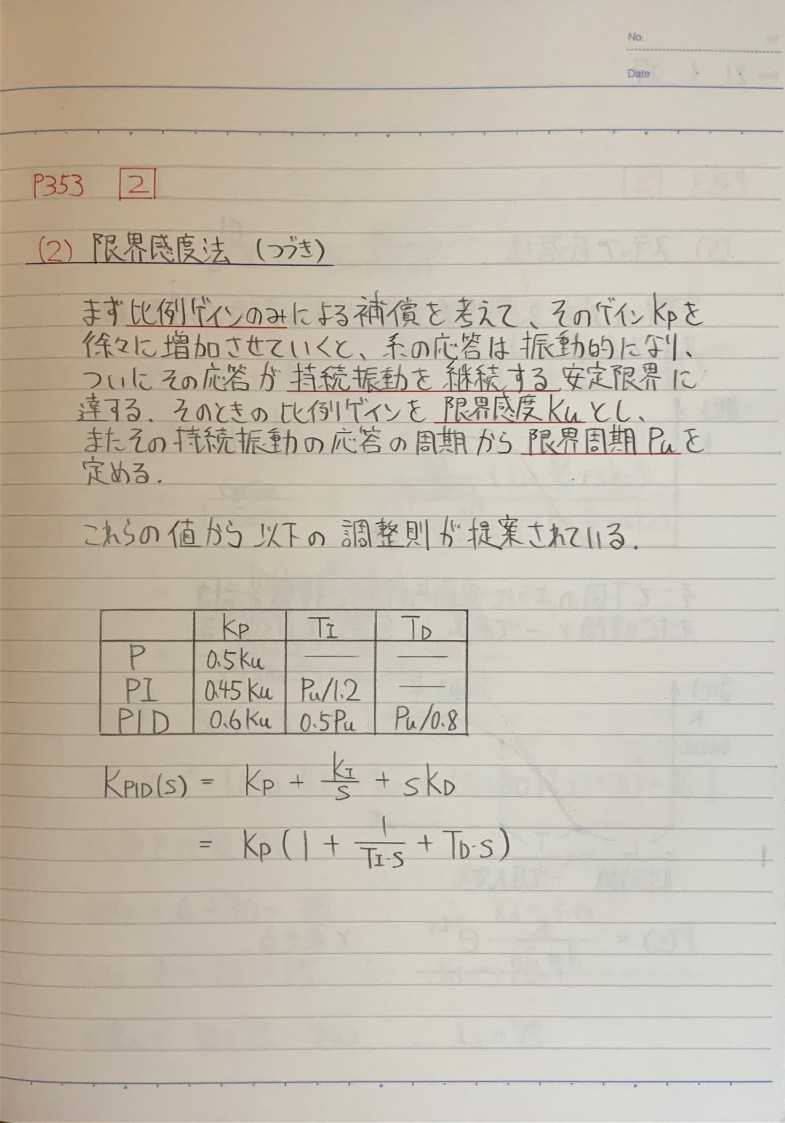 No.
Date
P353 2
(2) 限界感度法 (つづき)
まず比例ゲインのみによる補償を考えて、そのゲインKpを
徐々に増加させていくと、系の応答は振動的になり、
ついにその応答が持続振動を継続する安定限界に
達する. そのときの比例ゲインを限界感度Kuとし、
またその持続振動の応答の周期から限界周期Puを
定める.
これらの値から以下の調整則が提案されている.
KP TI TD
P 0.5Ku — —
PI 0.45Ku Pu/1.2 —
PID 0.6Ku 0.5Pu Pu/0.8
KPID(s) = KP + KI/s + sKD
= KP(1 + 1/TI·s + TD·s)